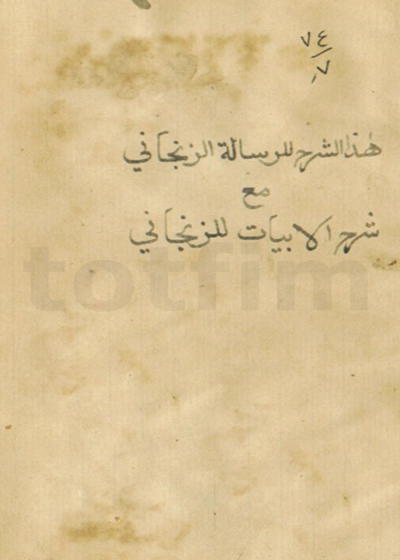 ٧٤
٧
هذا الشرح للرسالة الزنجاني
مع
شرح الابيات للزنجاني
totfim